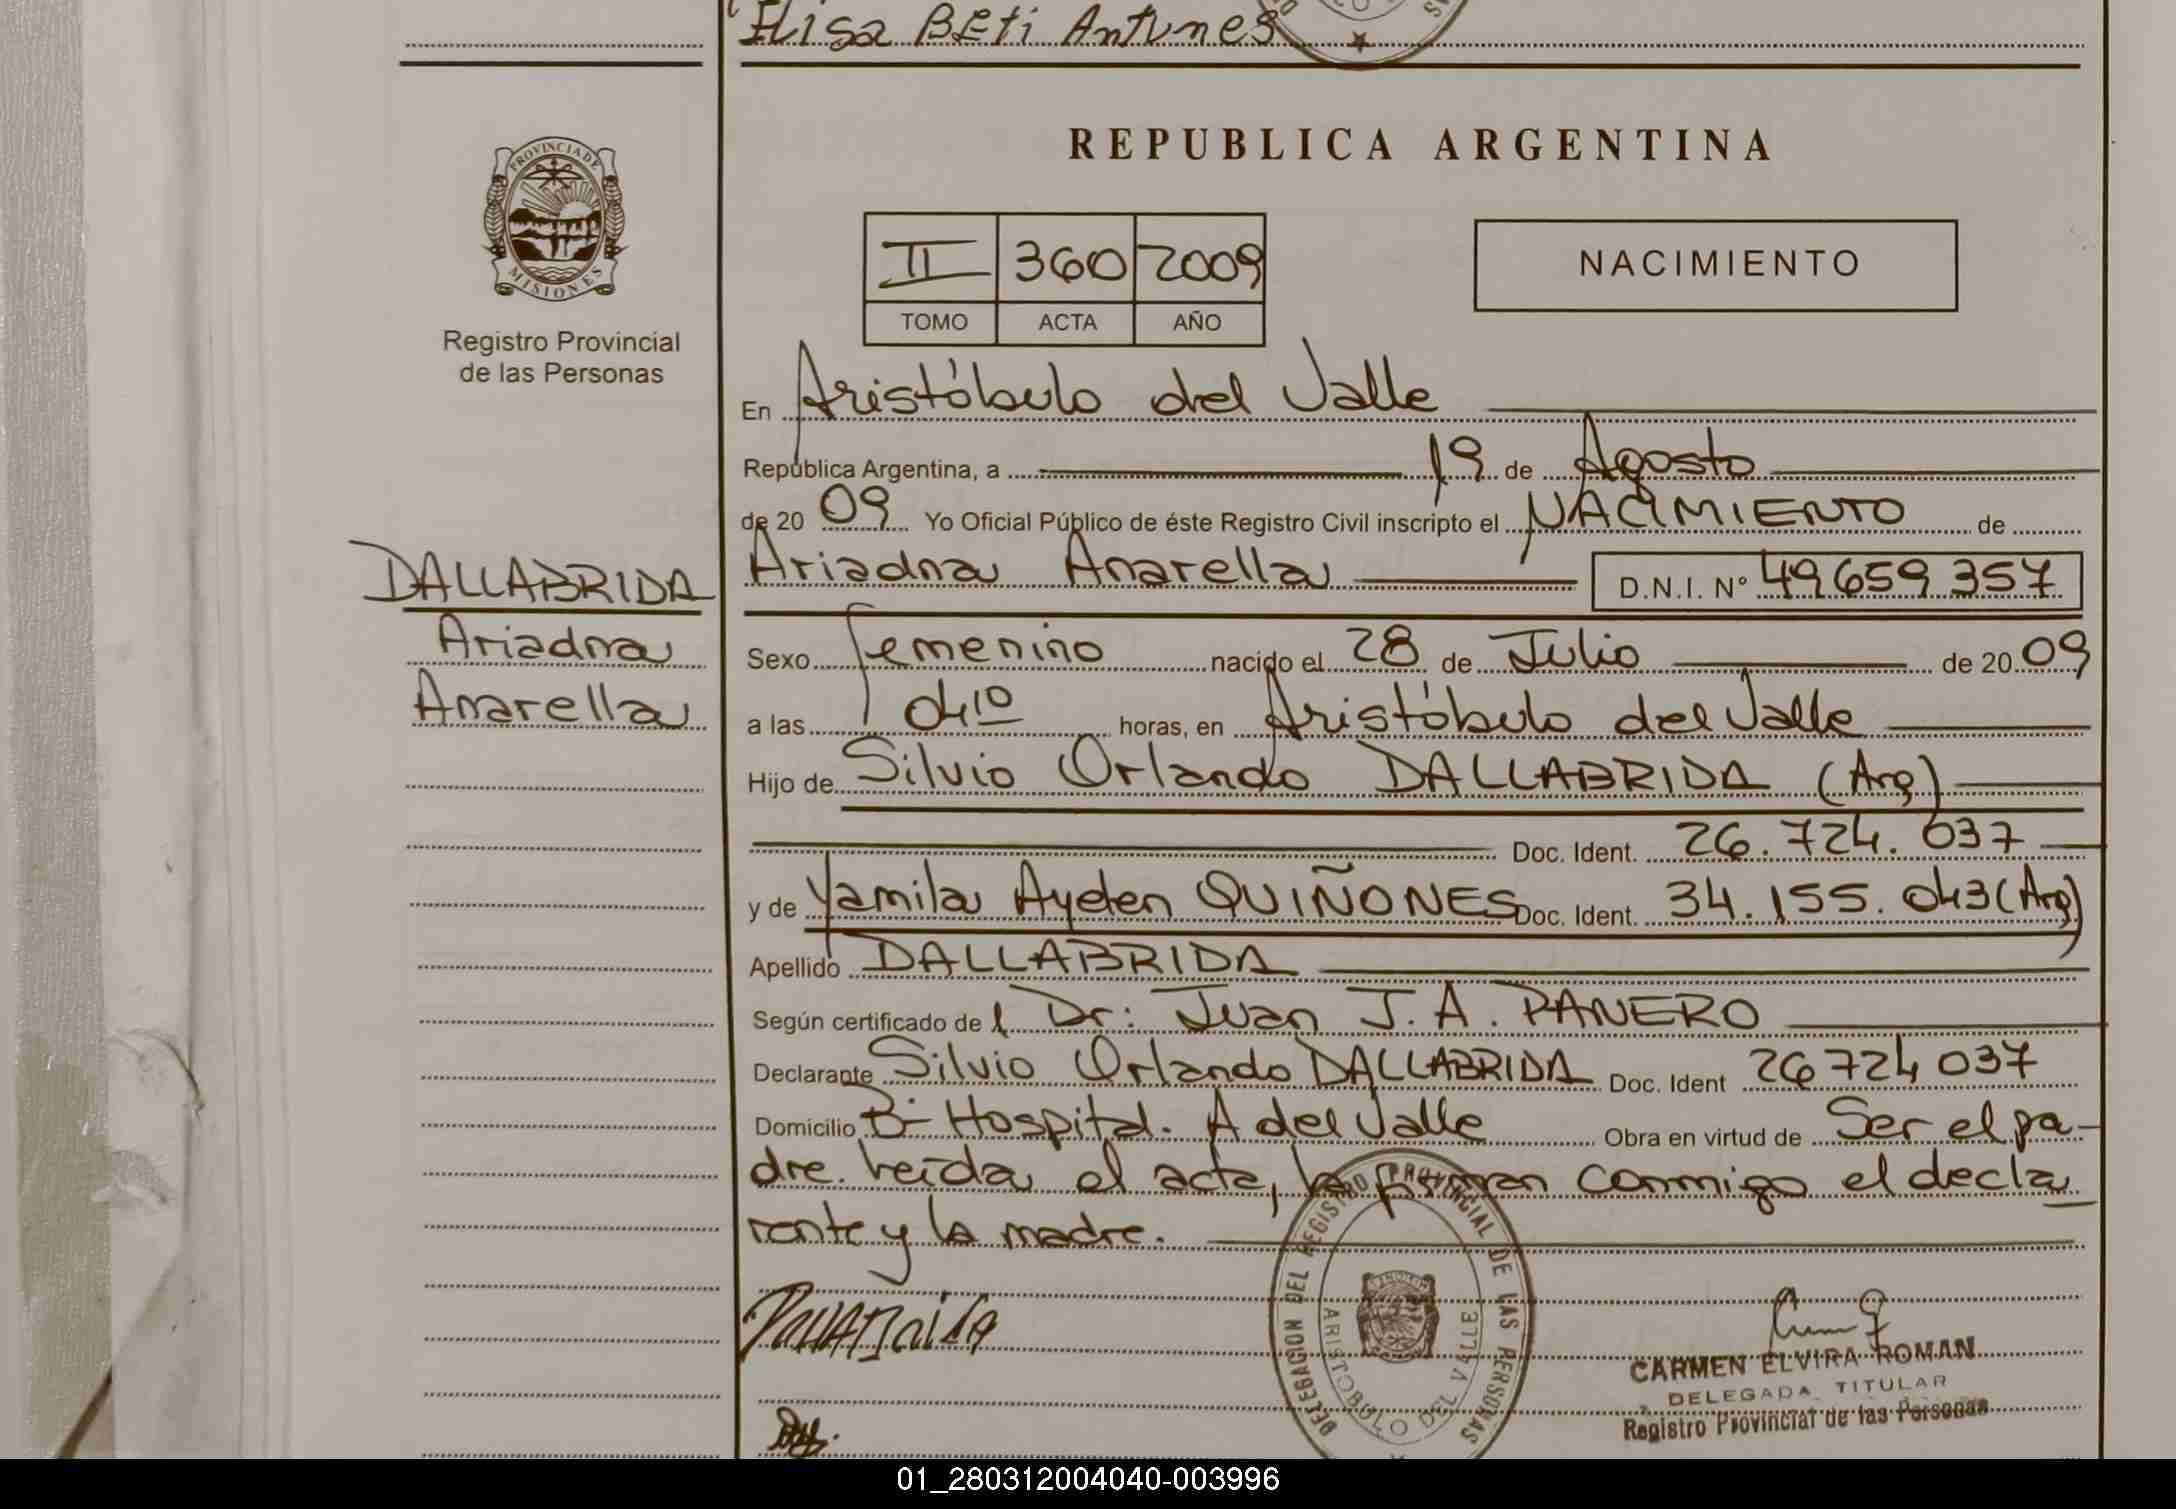 Elisa Beti Antunes
PROVINCIA DE
MISIONES
Registro Provincial
de las Personas
DALLABRIDA
Ariadna
Anarella
REPUBLICA ARGENTINA
II 360 2009
TOMO ACTA AÑO
NACIMIENTO
En Aristóbulo del Valle
República Argentina, a 19 de Agosto
de 20 09 Yo Oficial Público de éste Registro Civil inscripto el NACIMIENTO de
Ariadna Anarella D.N.I. Nº 49.659.357
Sexo femenino nacido el 28 de Julio de 20 09
a las 04 10 horas, en Aristóbulo del Valle
Hijo de Silvio Orlando DALLABRIDA (Arg)
Doc. Ident. 26.724.037
y de Yamila Ayelen QUIÑONES Doc. Ident. 34.155.043 (Arg)
Apellido DALLABRIDA
Según certificado de l Dr: Juan J. A. PANERO
Declarante Silvio Orlando DALLABRIDA Doc. Ident 26724037
Domicilio Bº Hospital. A del Valle Obra en virtud de Ser el pa-
dre. Leída el acta, la firman conmigo el decla
rante y la madre.
DELEGACION DEL REGISTRO PROVINCIAL DE LAS PERSONAS
ARISTOBULO DEL VALLE
CARMEN ELVIRA ROMAN
DELEGADA TITULAR
Registro Provincial de las Personas
01_280312004040-003996